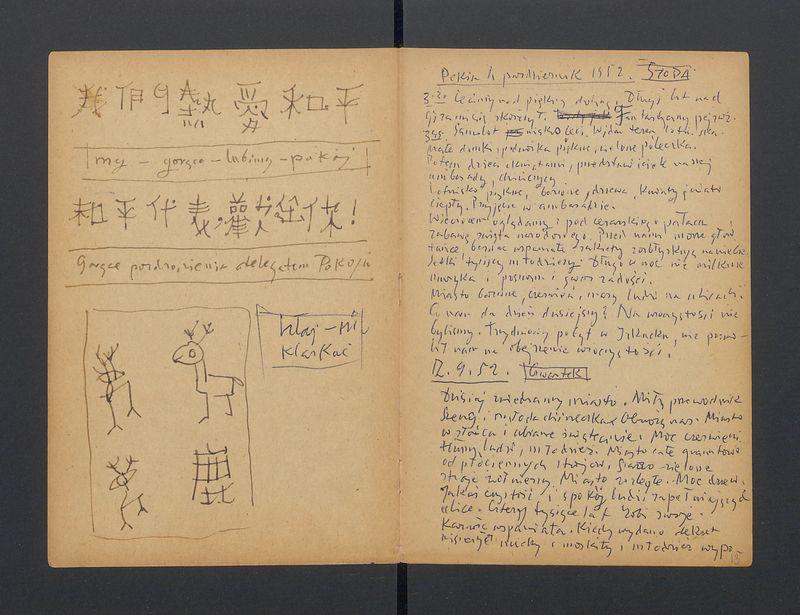 我們的熱愛和平
my – gorąco – lubimy – pokój
和平代表
!
Gorące pozdrowienia delegatom Pokoju
klaskać
鹿
Pekin październik 1952. ŚRODA
3.20 Lecimy nad piękną doliną. Długi lot nad
górami się skończył. Fantastyczny pejzaż.
3.45 Samolot nisko leci. Widać teren lotniska.
Małe domki, podwórka piękne, zielone poletka.
Potem dzieci z kwiatami, przedstawiciele naszej
ambasady, chińczycy.
Lotnisko piękne, barwne, drzewa, kwiaty, światło
ciepły. Przyjęcie w ambasadzie.
Wieczorem oglądamy pod cesarskiego pałacu
zabawę święta narodowego. Przed nami morze głów
tańce barwne wspaniałe rakiety rozbłyskują na niebie.
Setki tysięcy młodzieży. Długo w noc nie milknie
muzyka i piosenki i gwar radości.
Miasto barwne, czerwień, masy ludzi na ulicach.
Co nam da dzień dzisiejszy? Na uroczystości nie
byliśmy. Trzydniowy pobyt w Irkucku, nie pozwo-
lił nam na obejrzenie uroczystości.
2.9.52. Czwartek
Dzisiaj zwiedzamy miasto. Miły przewodnik
Szeng i młoda chineczka obwożą nas. Miasto
w słońcu i ubrane świątecznie. Moc czerwieni
tłumy ludzi, młodzież. Miasto całe granatowe
od płóciennych strojów. Szaro zielone
stroje żołnierzy. Miasto rozległe. Moc drzew.
Jakaś czystość i spokój ludzi zapełniających
ulice. Cztery tysiące lat robi swoje.
Karność wspaniała. Kiedy wydano dekret
muchy i moskity, młodzież
15